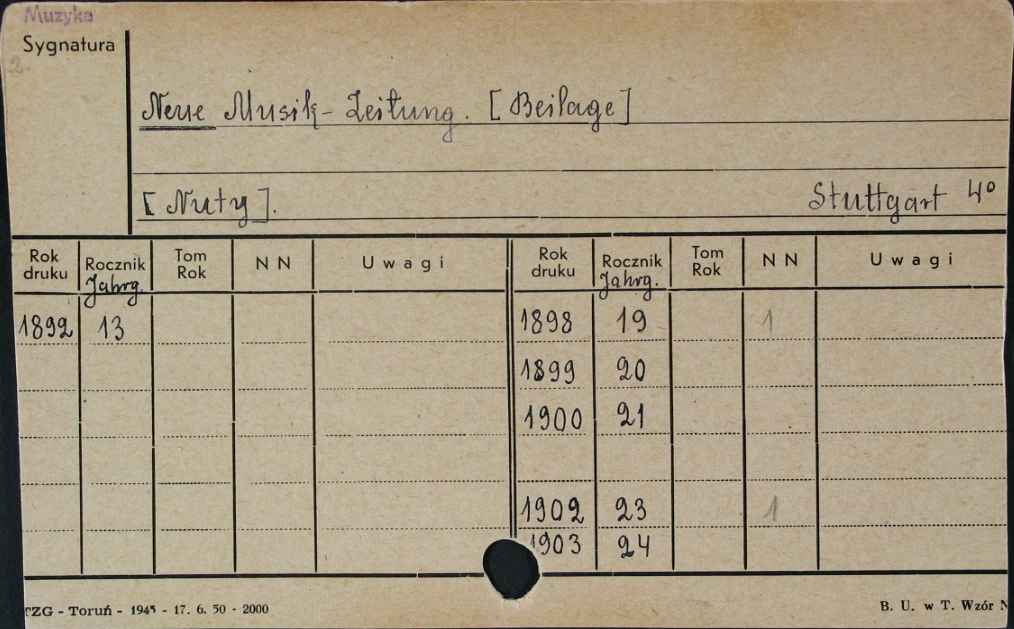 Muzyka
Sygnatura
2.
Neue Musik-Zeitung. [Beilage]
[Nuty].
Stuttgart 4°
Rok druku Rocznik Jahrg. Tom Rok NN Uwagi Rok druku Rocznik Jahrg. Tom Rok NN Uwagi
1892 13 1898 19 1
1899 20
1900 21
1902 23 1
1903 24
TZG - Toruń - 1945 - 17. 6. 50 - 2000
B. U. w T. Wzór N